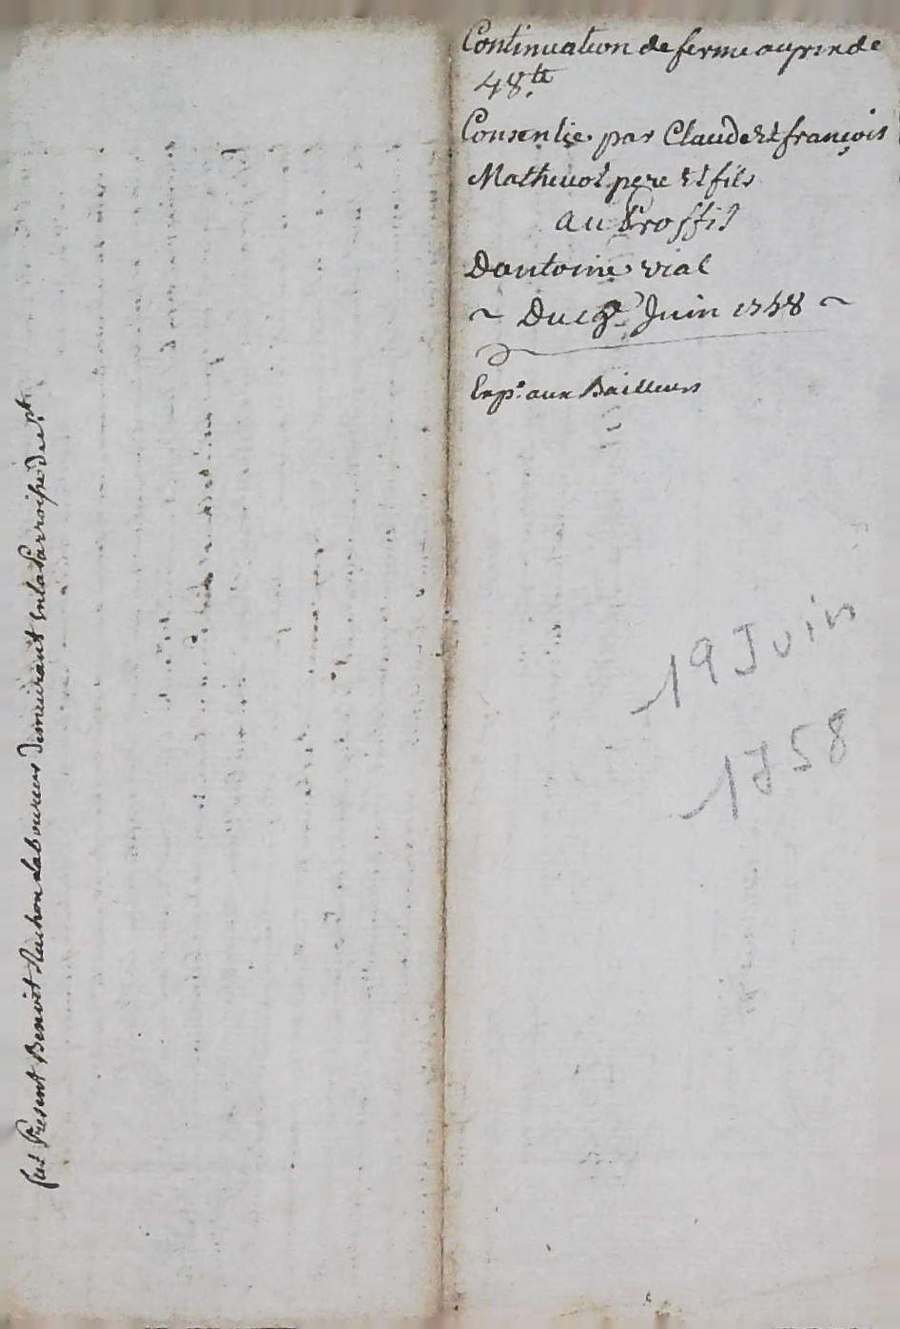 Continuation de ferme au prix de
48.tt
Consentie par Claude Et françois
Mathevot pere Et fils
au Proffit
Dantoine vial
~ Du 19e Juin 1758 ~
Exp.e aux Bailleurs
19 Juin
1758
fut Present Benoit laboureur demeurant en la Parroisse de